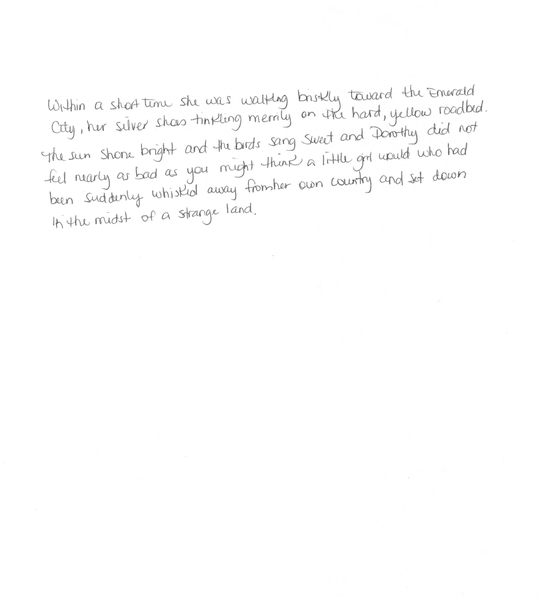 Within a short time she was walking briskly toward the Emerald
City, her silver shoes tinkling merrily on the hard, yellow roadbed.
The sun shone bright and the birds sang sweet and Dorothy did not
feel nearly as bad as you might think a little girl would who had
been suddenly whisked away from her own country and set down
in the midst of a strange land.